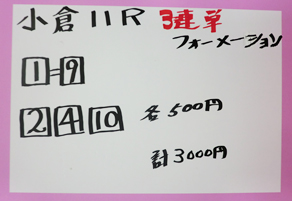 小倉11R 3連単
フォーメーション
1=9
2 4 10 各500円
計3000円